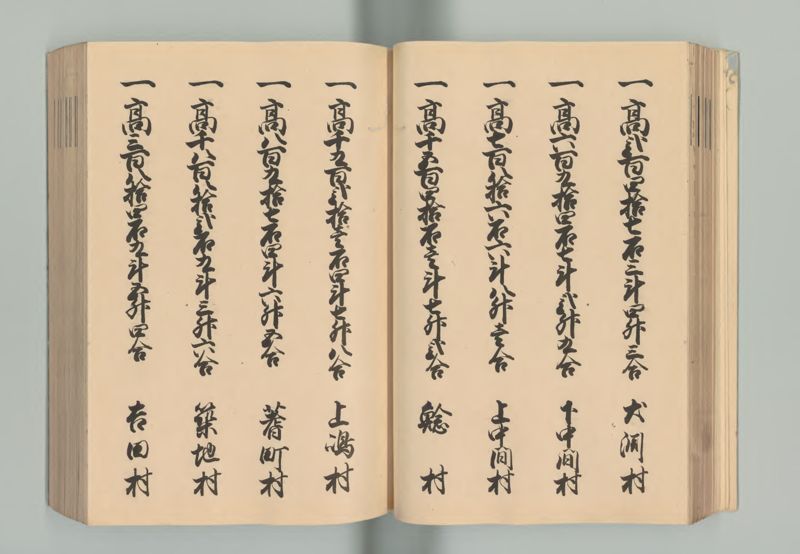 一高弐百四拾七石三斗四升三合 犬渕村
一高六百九拾四石七斗弐升九合 下中間村
一高七百八拾六石六斗八升壱合 上中間村
一高千五百四拾石壱斗七升弐合 村
一高千五百弐拾壱石四斗七升八合 上嶋村
一高八百九拾七石四斗六升五合 町村
一高千八百八拾弐石九斗三升六合 築地村
一高三百八拾四石九斗五升四合 吉田村